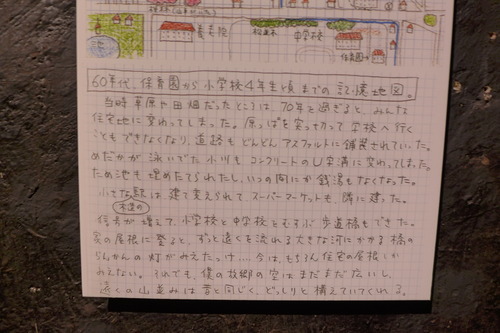 養老院
中学校
保育園
60年代、保育園から小学校4年生頃までの記憶地図。
当時草原や田畑だったところは、70年を過ぎると、みんな
住宅地に変わってしまった。原っぱを突っ切って学校へ行く
こともできなくなり、道路もどんどんアスファルトに舗装されていった。
めだかが泳いでた小川もコンクリートのU字溝に変わってしまった。
ため池も埋めたてられたし、いつの間にか銭湯もなくなった。
小さな駅は建て変えられて、スーパーマーケットも隣に建った。
木造の
信号が増えて、小学校と中学校とをむすぶ歩道橋もできた。
家の屋根に登ると、ずっと遠くを流れる大きな河にかかる橋の
らんかんの灯がみえたっけ…。今は、もちろん住宅の屋根しか
みえない。それでも、僕の故郷の空はまだまだ広いし、
遠くの山並みは昔と同じく、どっしりと構えていてくれる。